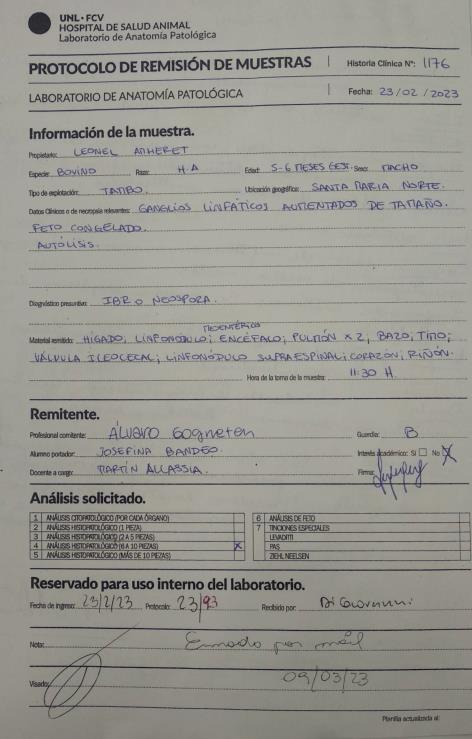 UNL · FCV
HOSPITAL DE SALUD ANIMAL
Laboratorio de Anatomía Patológica
PROTOCOLO DE REMISIÓN DE MUESTRAS | Historia Clínica Nº: 1176
LABORATORIO DE ANATOMÍA PATOLÓGICA | Fecha: 23/02/2023
Información de la muestra.
Propietario: LEONEL
Especie: BOVINO Raza: H.A Edad: 5-6 MESES GEST. Sexo: MACHO
Tipo de explotación: TAMBO. Ubicación geográfica: SANTA MARIA NORTE.
Datos Clínicos o de necropsia relevantes: GANGLIOS LINFÁTICOS AUMENTADOS DE TAMAÑO.
FETO CONGELADO.
AUTÓLISIS.
Diagnóstico presuntivo: IBR O NEOSPORA.
MESENTÉRICO
Material remitido: HÍGADO; LINFONÓDULO; ENCÉFALO; PULMÓN x 2; BAZO; TIMO;
VÁLVULA ILEOCECAL; LINFONÓDULO SUPRAESPINAL; CORAZÓN; RIÑÓN.
Hora de la toma de la muestra: 11:30 H.
Remitente.
Profesional comitente: ÁLVARO Guardia: B
Alumno portador: JOSEFINA BANDEO. Interés académico: SI ☐ No X
Docente a cargo: MARTÍN ALLASSIA. Firma:
Análisis solicitado.
1 ANÁLISIS CITOPATOLÓGICO (POR CADA ÓRGANO) 6 ANÁLISIS DE FETO
2 ANÁLISIS HISTOPATOLÓGICO (1 PIEZA) 7 TINCIONES ESPECIALES
3 ANÁLISIS HISTOPATOLÓGICO (2 A 5 PIEZAS) LEVADITTI
4 ANÁLISIS HISTOPATOLÓGICO (6 A 10 PIEZAS) X PAS
5 ANÁLISIS HISTOPATOLÓGICO (MÁS DE 10 PIEZAS) ZIEHL NEELSEN
Reservado para uso interno del laboratorio.
Fecha de ingreso: 23/2/23 Protocolo: 23/93 Recibido por: Di Giovanni
Nota: Enviado por mail
Visado: 09/03/23
Planilla actualizada al: